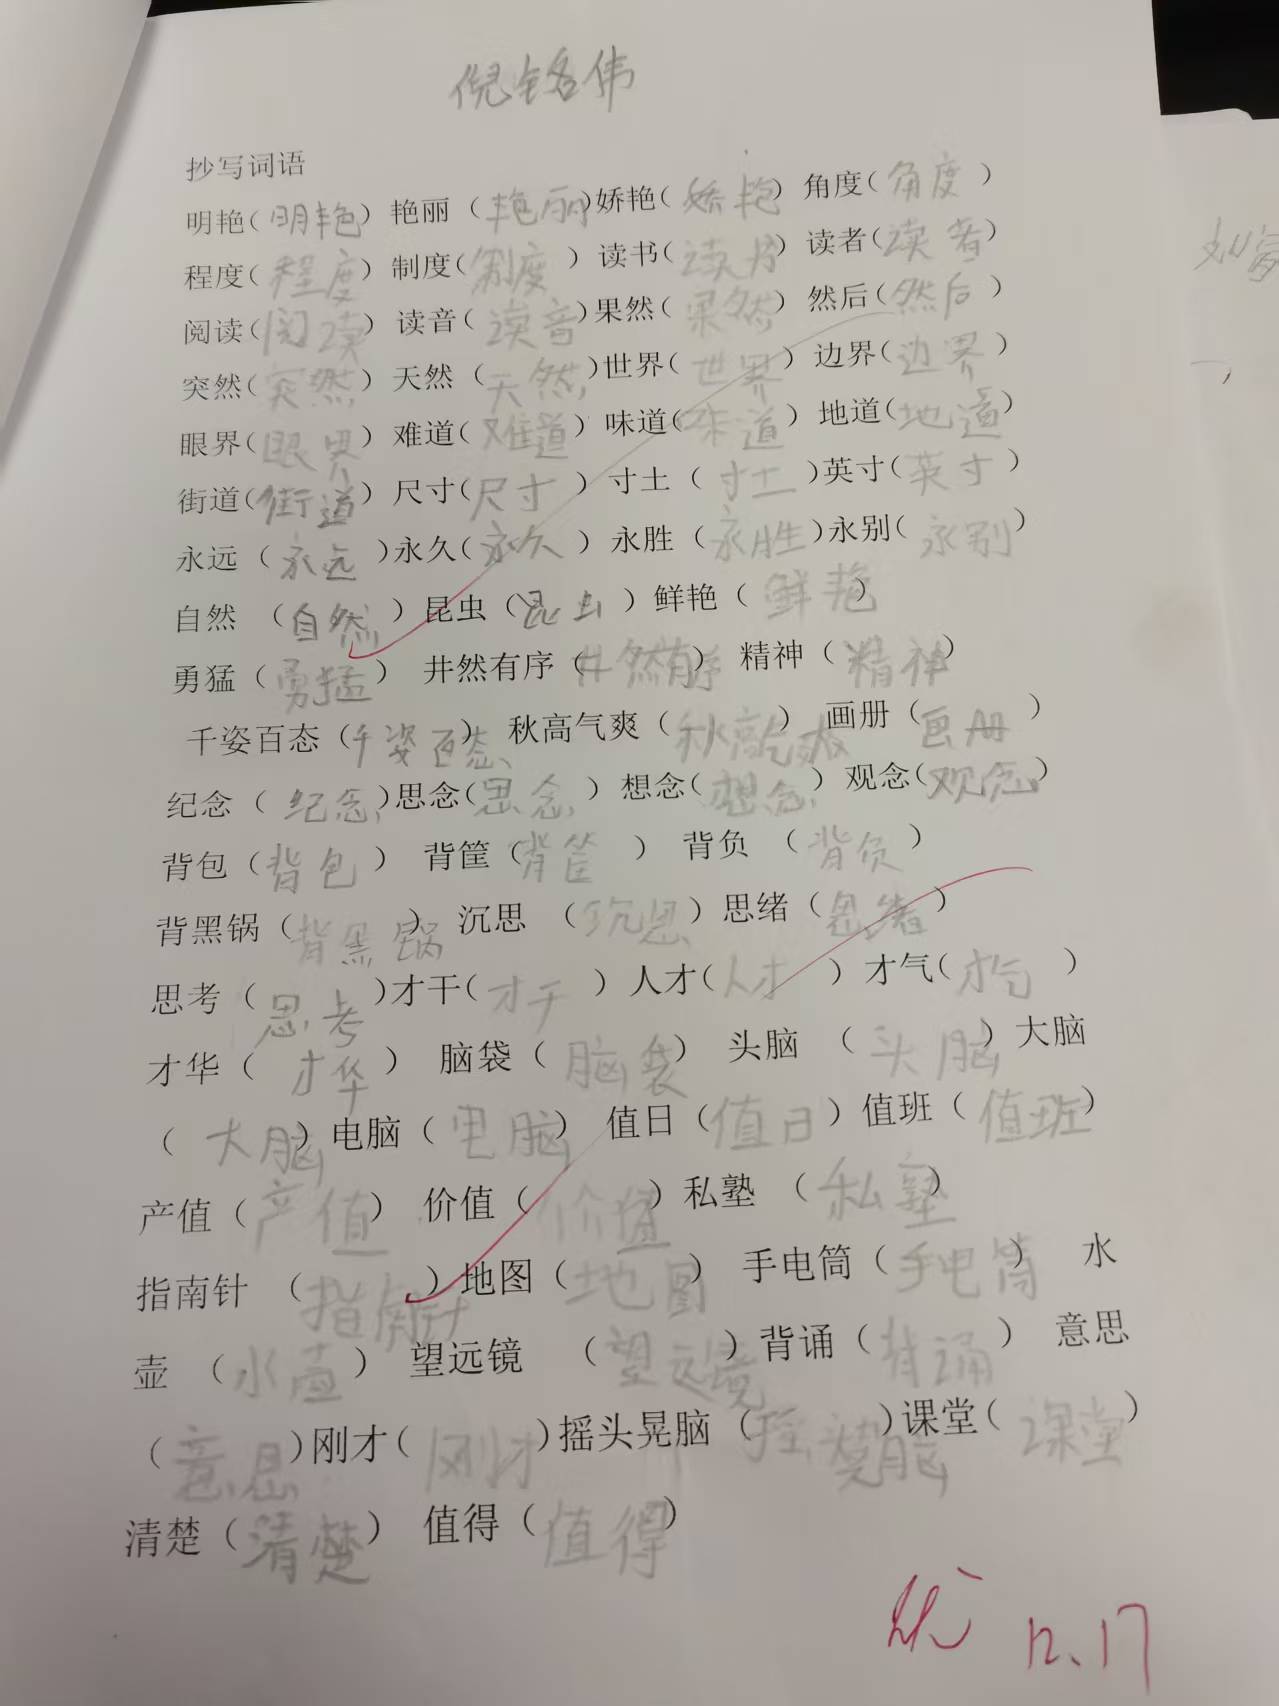 倪铭伟
抄写词语
明艳(明艳) 艳丽(艳丽)娇艳(娇艳) 角度(角度)
程度(程度) 制度(制度) 读书(读书) 读者(读者)
阅读(阅读) 读音(读音)果然(果然) 然后(然后)
突然(突然) 天然(天然)世界(世界) 边界(边界)
眼界(眼界) 难道(难道) 味道(味道) 地道(地道)
街道(街道) 尺寸(尺寸) 寸土(寸土)英寸(英寸)
永远(永远)永久(永久) 永胜(永胜)永别(永别)
自然(自然) 昆虫(昆虫) 鲜艳(鲜艳)
勇猛(勇猛) 井然有序(井然有序) 精神(精神)
千姿百态(千姿百态) 秋高气爽(秋高气爽) 画册(画册)
纪念(纪念)思念(思念) 想念(想念) 观念(观念)
背包(背包) 背筐(背筐) 背负(背负)
背黑锅(背黑锅) 沉思(沉思)思绪(思绪)
思考(思考)才干(才干) 人才(人才) 才气(才气)
才华(才华) 脑袋(脑袋) 头脑(头脑)大脑
(大脑)电脑(电脑) 值日(值日)值班(值班)
产值(产值) 价值(价值)私塾(私塾)
指南针(指南针)地图(地图) 手电筒(手电筒) 水
壶(水壶) 望远镜(望远镜)背诵(背诵) 意思
(意思)刚才(刚才)摇头晃脑(摇头晃脑)课堂(课堂)
清楚(清楚) 值得(值得)
优 12.17